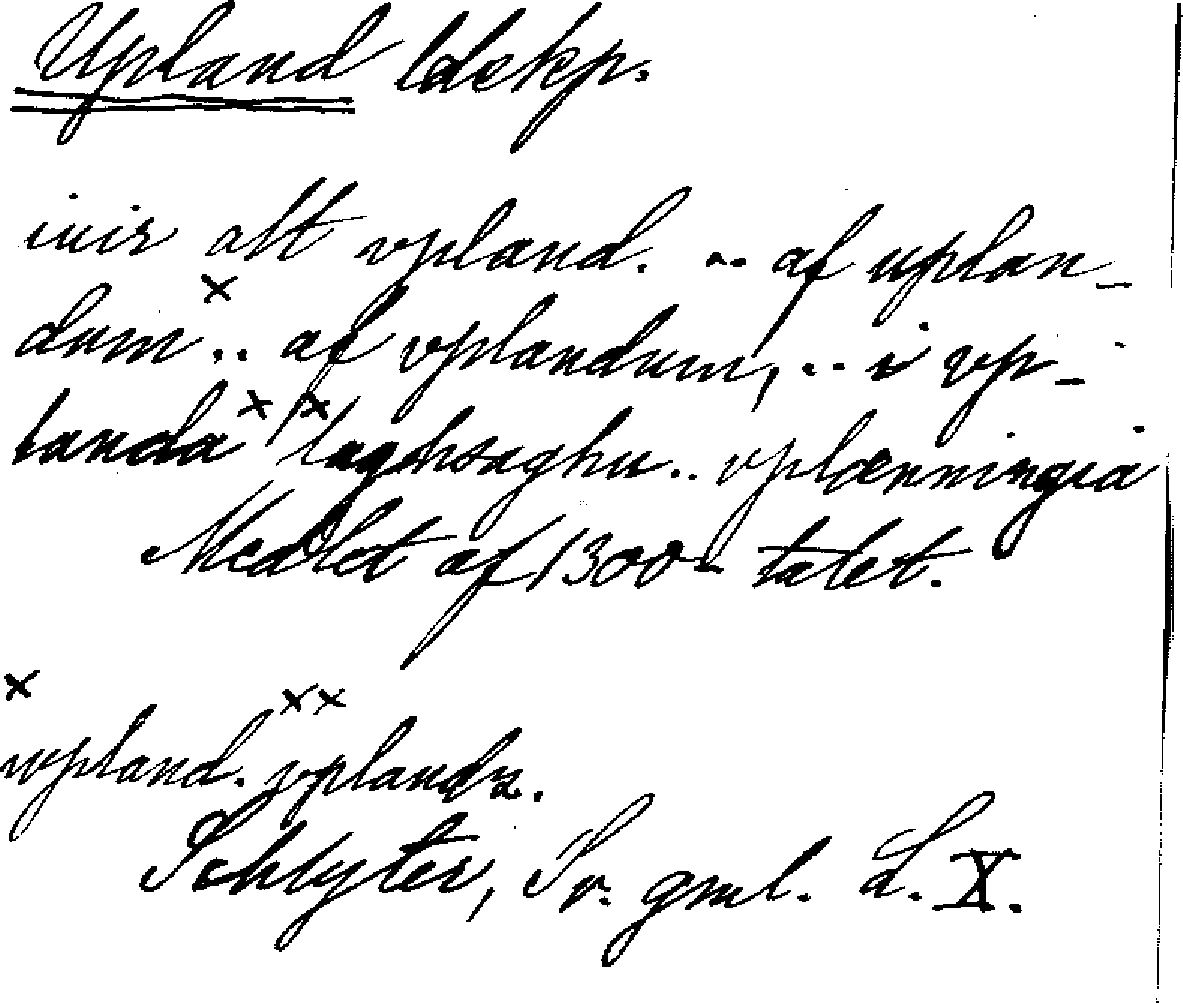 Upland ldskp.
iuir alt vpland. .. af uplan-
dum× .. af vplandum, .. i vp-
landa×× laghsaghu .. vplænningia
Medlet af 1300-talet.
× ××
vpland. vplandz.
Schlyter, Sv. gml. L. X.